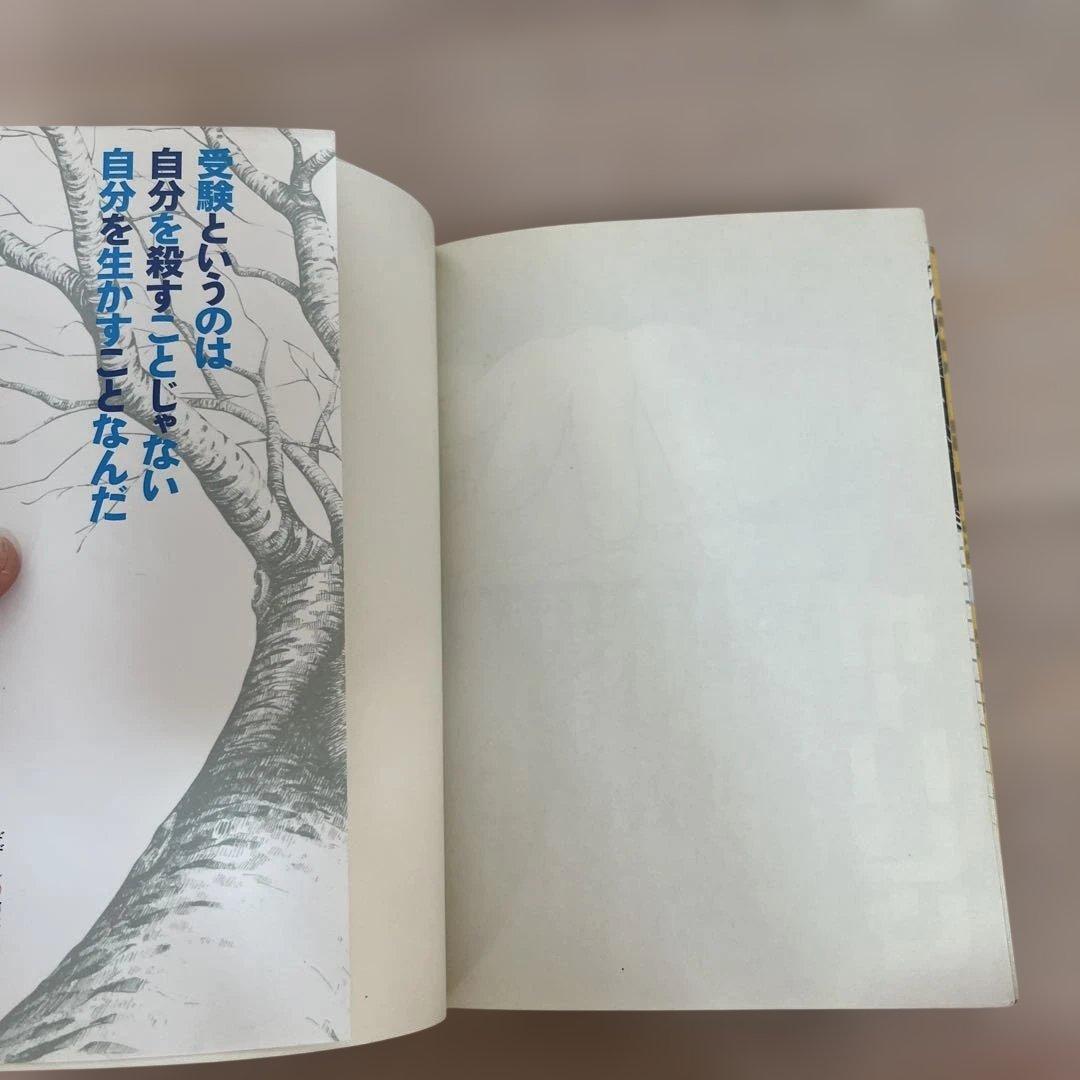 受験というのは
自分を殺すことじゃない
自分を生かすことなんだ